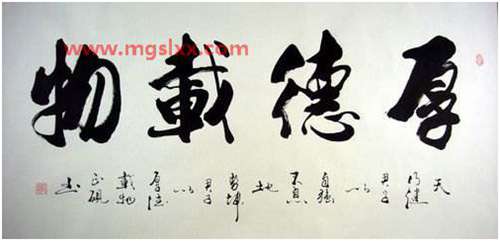 www.mgslxx.com
厚德載物
天行健君子以自強不息地勢坤君子以厚德載物